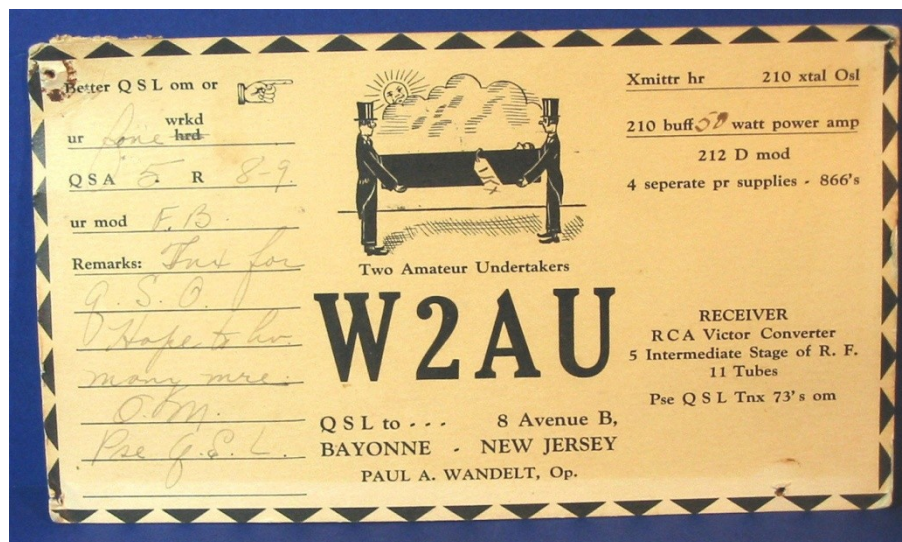 Better QSL om or
ur fone wrkd hrd
QSA 5 R 8-9.
ur mod F.B.
Remarks: Tnx for
Q.S.O.
Hope to hv.
many mre.
O.M.
Pse Q.S.L.
Two Amateur Undertakers
W2AU
QSL to - - - 8 Avenue B,
BAYONNE - NEW JERSEY
PAUL A. WANDELT, Op.
Xmittr hr 210 xtal Osl
210 buff 50 watt power amp
212 D mod
4 seperate pr supplies - 866's
RECEIVER
RCA Victor Converter
5 Intermediate Stage of R. F.
11 Tubes
Pse QSL Tnx 73's om